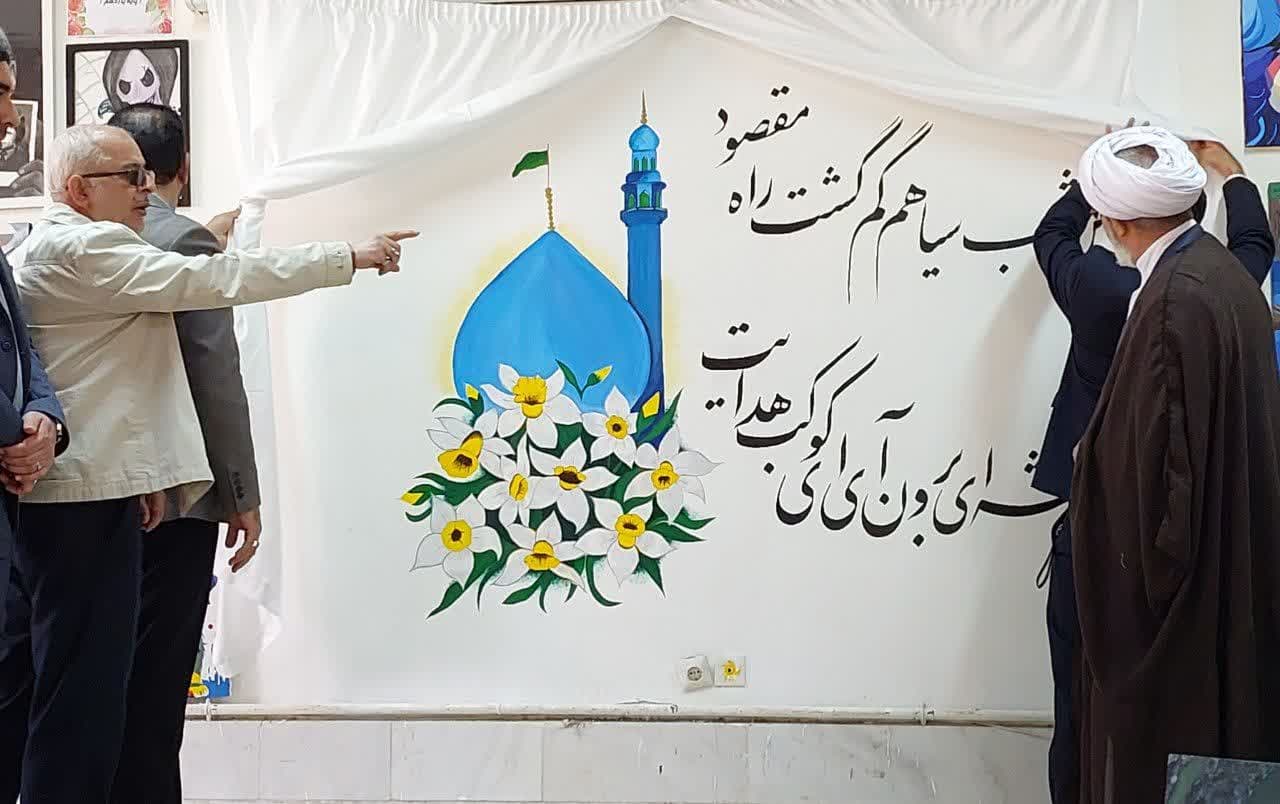 سیاهم گم گشت راه مقصود
برون آی ای کوکب هدایت